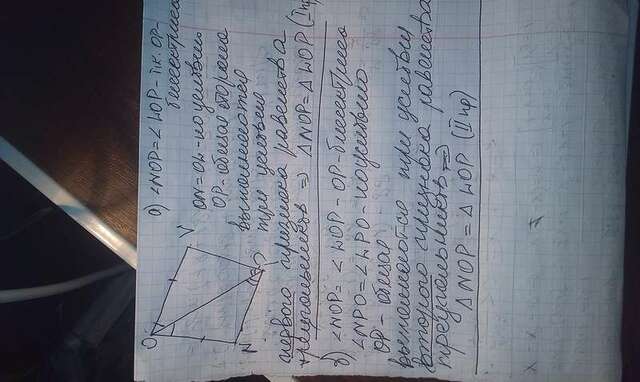 а) ∠NOP = ∠LOP - т.к. OP-
биссектриса
ON = OL - по условию
OP - общая сторона
выполняются
три условия
первого признака равенства
треугольников ⇒ △NOP = △LOP (I пр)
б) ∠NOP = ∠LOP - OP - биссектриса
∠NPO = ∠LPO - по условию
OP - общая
выполняются три условия
второго признака равенства
треугольников ⇒
△NOP = △LOP (II пр)
O
N